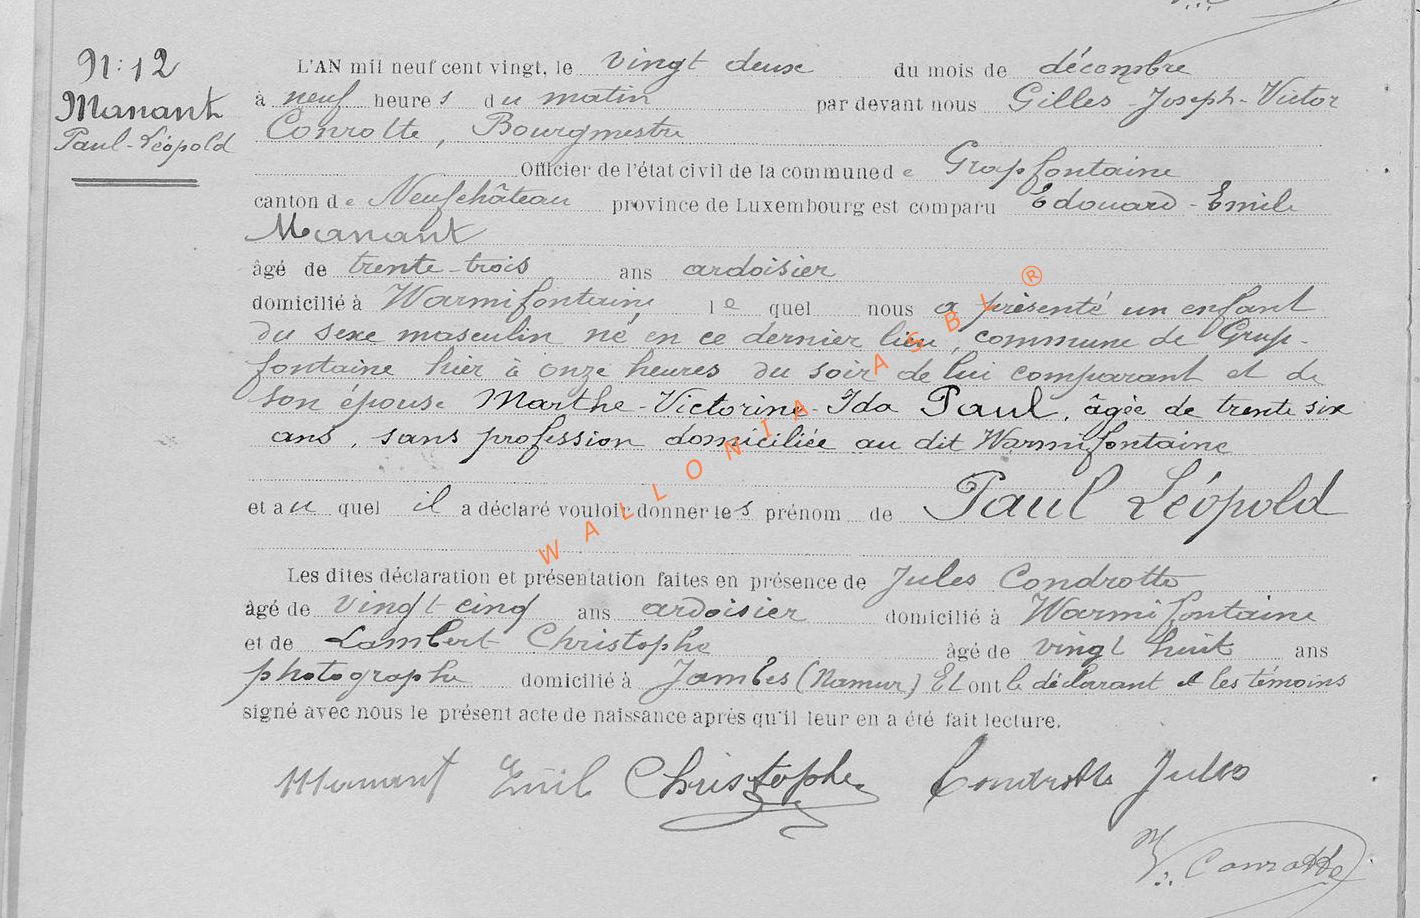 N: 12
Manant
Paul-Léopold
L'AN mil neuf cent vingt, le vingt deux du mois de décembre
à neuf heures du matin par devant nous Gilles-Joseph-Victor
Conrotte, Bourgmestre
Officier de l'état civil de la commune de Grapfontaine
canton de Neufchâteau province de Luxembourg est comparu Edouard-Emile
Manant
âgé de trente-trois ans ardoisier
domicilié à Warmifontaine lequel nous a présenté un enfant
du sexe masculin né, en ce dernier lieu, commune de Grap-
fontaine hier à onze heures du soir de lui comparant et de
son épouse Marthe-Victorine-Ida Paul, âgée de trente six
ans, sans profession domiciliée au dit Warmifontaine
et auquel il a déclaré vouloir donner les prénom de Paul Léopold
Les dites déclaration et présentation faites en présence de Jules Condrotte
âgé de vingt-cinq ans ardoisier domicilié à Warmifontaine
et de Lambert Christophe âgé de vingt huit ans
photographe domicilié à Jambes (Namur) Et ont le déclarant et les témoins
signé avec nous le présent acte de naissance après qu'il leur en a été fait lecture.
Manant Emil Christophe Condrotte Jules
V. Conrotte
WALLONIA ASBL ®